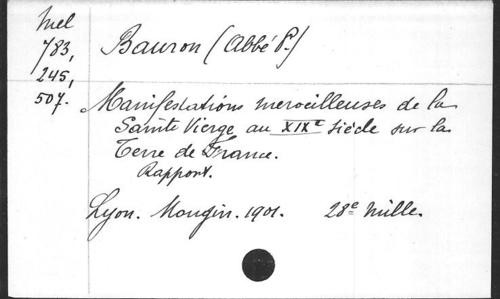 Mel
783,
245,
507.
Bauron (Abbé P.)
Manifestations merveilleuses de la
Sainte Vierge au XIXe siècle sur la
Terre de France.
Rapport.
Lyon. Mougin. 1901. 28e mille.